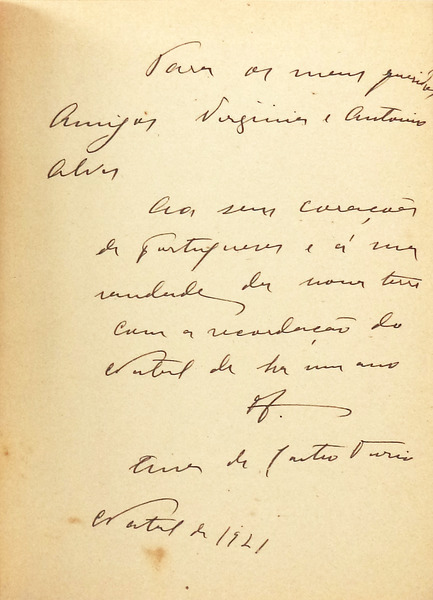 Para os meus queridos
Amigos Virginia e Antonio
Alves
Aos seus corações
de portugueses e á sua
saudade da nossa terra
com a recordação do
Natal de ha um ano
Of.
de Castro Osorio
Natal de 1921